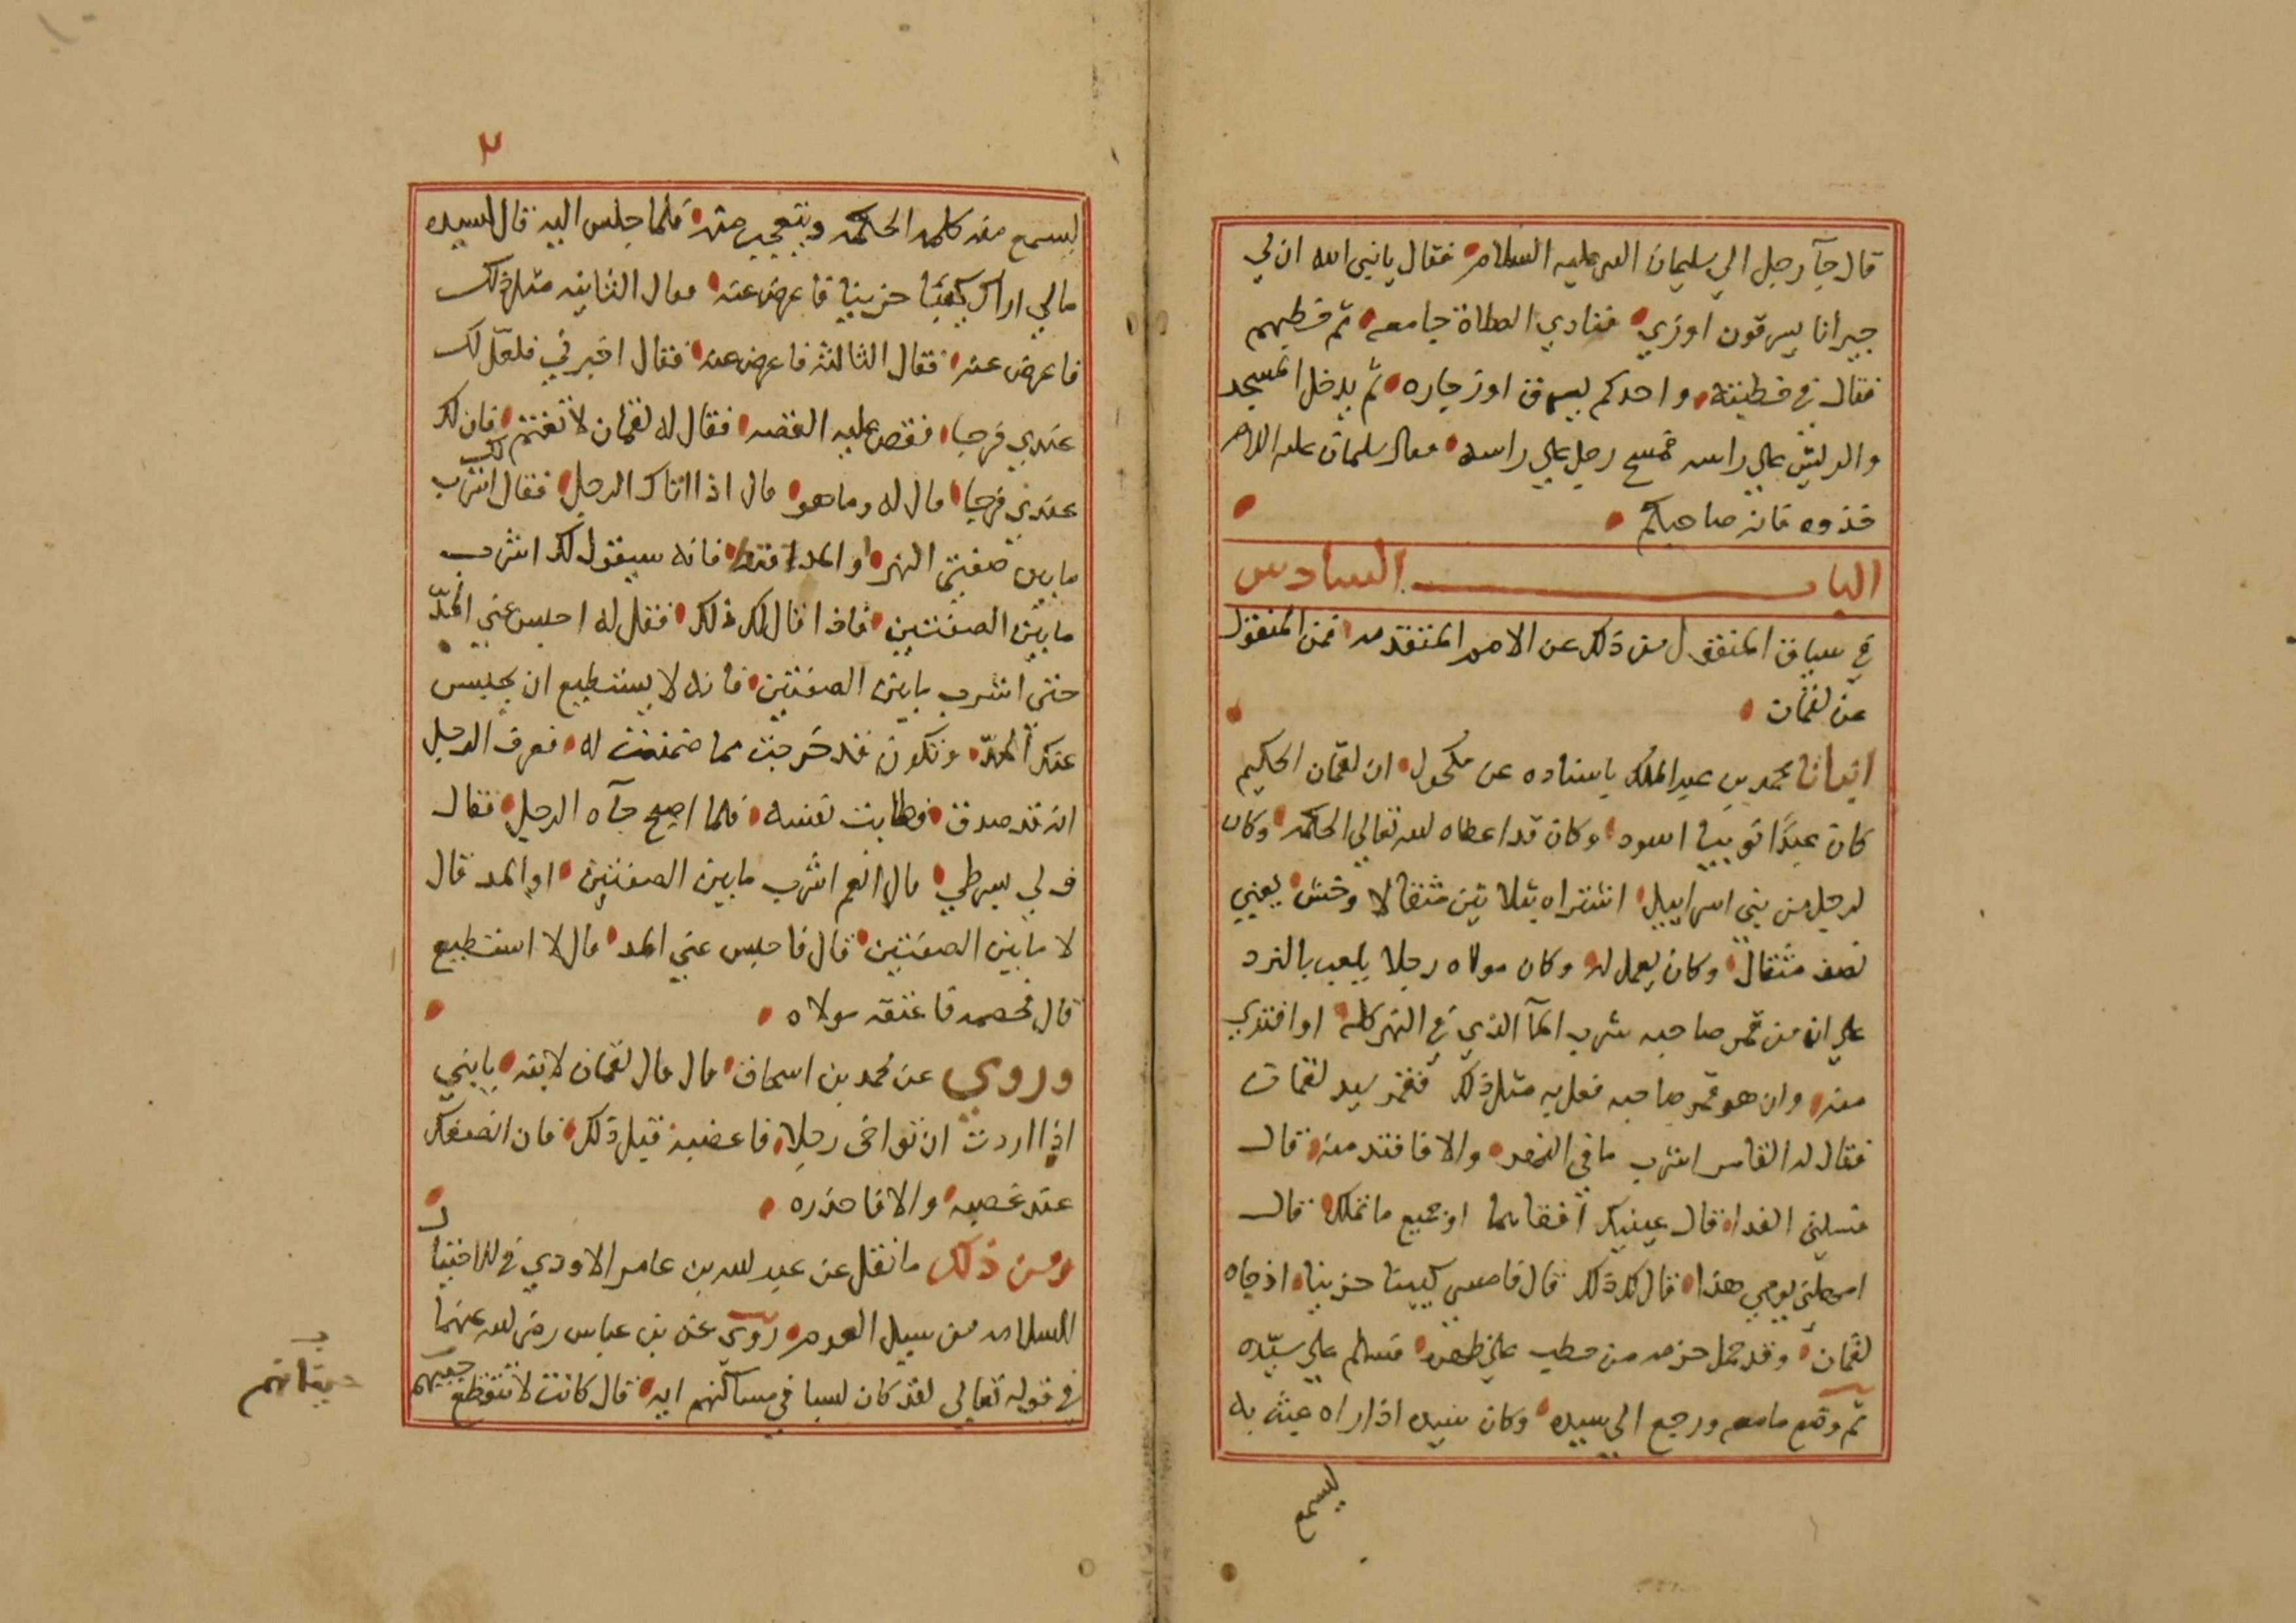 قال جآ رجل الي سليمان النبي عليه السلام فقال يانبي الله ان لي
جيرانا يسرقون اوزي فنادي الصلاة جامعه ثم خطبهم
فقال في خطبته واحدكم يسرق اوز جاره ثم يدخل المسجد
والريش علي راسه فمسح رجل علي راسه فقال سليمان عليه السلام
خذوه فانه صاحبكم
الباب السادس
في سياق المنقول من ذلك عن الامم المتقدمه فمن المنقول
عن لقمان
انبانا محمد بن عبد الملك باسناده عن مكحول ان لقمان الحكيم
كان عبدًا نوبيا اسود وكان قد اعطاه لله تعالي الحكمه وكان
لرجل من بني اسراييل اشتراه بثلاثين مثقالا ونش يعني
نصف مثقال وكان يعمل له وكان مولاه رجلا يلعب بالنرد
علي ان من قمر صاحبه شرب المآ الذي في النهر كله او افتدي
منه وان هو قمر صاحبه فعل به مثل ذلك فقمر سيد لقمان
فقال له القامر اشرب ما في النهر والا فافتد منه قال
فسلني الفدا قال عينيك افقاهما او جميع ما تملك قال
امهلني يومي هذا قال لك ذلك قال فامسي كييبا حزينا اذ جاه
لقمان وقد حمل حزمه من حطب علي ظهره فسلم علي سيّده
ثم وضع مامعه ورجع الي سيده وكان سيده اذا راه عبث به
ليسمع
٢
ليسمع منه كلمه الحكمه ويتعجب منه فلما جلس اليه قال لسيده
مالي اراك كييبا حزينا فاعرض عنه فقال الثانيه مثل ذلك
فاعرض عنه فقال الثالثه فاعرض عنه فقال اخبرني فلعلّ لك
عندي فرجا فقص عليه القصه فقال له لقمان لا تغتم فان لك
عندي فرجا قال له وما هو قال اذا اتاك الرجل فقال لك اشرب
ما بين ضفتي النهر او المد فانه سيقول لك اشرب
مابين الضفتين فاذا قال لك ذلك فقل له احبس عني المدّ
حتي اشرب مابين الضفتين فانه لا يستطيع ان يحبس
عنك المدّ وتكون قد خرجت مما ضمنت له فعرف الرجل
انه قد صدق فطابت نفسه فلما اصبح جآه الرجل فقال
ف لي بشرطي قال نعم اشرب مابين الضفتين او المد قال
لا مابين الضفتين قال فاحبس عني المد قال لا استطيع
قال فخصمه فاعتقه مولاه
وروي عن محمد بن اسحاق قال قال لقمان لابنه يابني
اذا اردت ان تواخي رجلا فاغضبه قبل ذلك فان انصفك
عند غضبه والا فاحذره
ومن ذلك مانقل عن عبد لله بن عامر الاودي
من سيل العرم روي عن بن عباس رضي لله عنهما
في قوله تعالي لقد كان لسبا في مساكنهم ايه قال كانت لا تنقطع